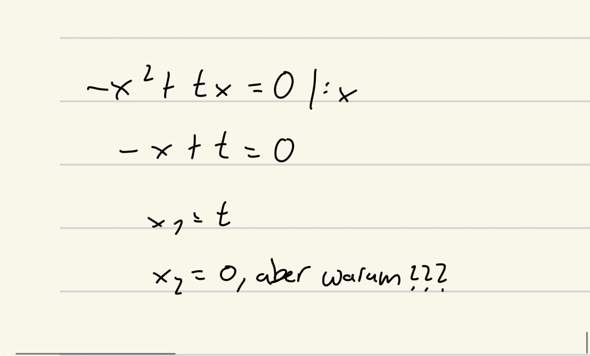 -x² + tx = 0 |:x
-x + t = 0
x₁ = t
x₂ = 0, aber warum???